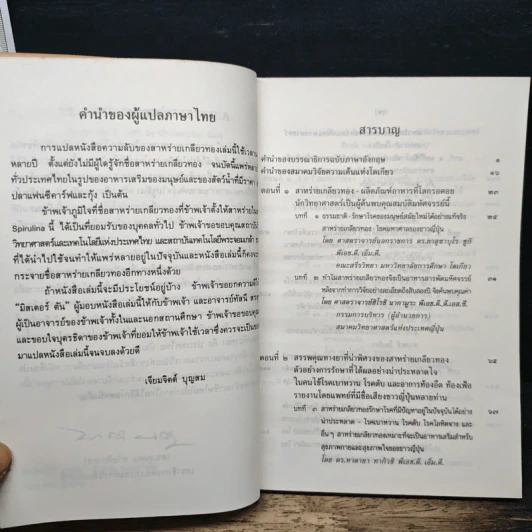 คำนำของผู้แปลภาษาไทย
การแปลหนังสือความลับของสาหร่ายเกลียวทองเล่มนี้ใช้เวลา
หลายปี ตั้งแต่ยังไม่มีผู้ใดรู้จักชื่อสาหร่ายเกลียวทอง จนบัดนี้แพร่หลาย
ทั่วประเทศไทยในรูปของอาหารเสริมของมนุษย์และของสัตว์น้ำที่มีราคา
ปลาแฟนซีคาร์ฟและกุ้ง เป็นต้น
ข้าพเจ้าภูมิใจที่ชื่อสาหร่ายเกลียวทองที่ข้าพเจ้าตั้งให้สาหร่าย
Spirulina นี้ ได้เป็นที่ยอมรับของบุคคลทั่วไป ข้าพเจ้าขอขอบคุณสถาบัน
วิทยาศาสตร์และเทคโนโลยีแห่งประเทศไทย และสถาบันเทคโนโลยีพระจอมเกล้า
ที่ได้นำไปใช้จนทำให้แพร่หลายอยู่ในปัจจุบันและหนังสือเล่มนี้ก็คง
กระจายชื่อสาหร่ายเกลียวทองอีกทางหนึ่งด้วย
ถ้าหนังสือเล่มนี้จะมีประโยชน์อยู่บ้าง ข้าพเจ้าขอยกความดี
“มิสเตอร์ ตัน” ผู้มอบหนังสือเล่มนี้ให้กับข้าพเจ้า และอาจารย์ทัศนีย์
ผู้เป็นอาจารย์ของข้าพเจ้าทั้งในและนอกสถานศึกษา ข้าพเจ้าขอขอบคุณ
และขอบใจบุตรธิดาของข้าพเจ้าที่ยอมให้ข้าพเจ้าใช้เวลาซึ่งควรจะเป็นของ
มาแปลหนังสือเล่มนี้จนจบลงด้วยดี
เจียมจิตต์ บุญสม
สารบาญ
คำนำของบรรณาธิการฉบับภาษาอังกฤษ ๑
คำนำของสมาคมวิจัยความเค้นแห่งโตเกียว ๑๖
ตอนที่ ๑ สาหร่ายเกลียวทอง - ผลิตภัณฑ์อาหารที่โลกรอคอย ๒๓
นักวิทยาศาสตร์เป็นผู้ค้นพบคุณสมบัติมหัศจรรย์นี้
บทที่ ๑ ธรรมชาติ - รักษาโรคของมนุษย์สมัยใหม่ได้อย่างแท้จริง ๒๕
สาหร่ายเกลียวทอง - โรคมหาศาลของชาวญี่ปุ่น
โดย ศาสตราจารย์นอกราชการ ดร.มาสุซาบุโร ชูกิ
พีเอส.ดี.เอ็ม.ดี.
คณะสรีรวิทยา มหาวิทยาลัยการศึกษา โตเกียว
บทที่ ๒ ทำไมสาหร่ายเกลียวทองจึงเป็นอาหารสารพัดมหัศจรรย์ ๓๑
หลังจากทำการวิจัยอย่างละเอียดถึงสิบสองปี จึงค้นพบคุณค่า
โดย ศาสตราจารย์ฮิโรชิ นากามูระ พีเอส.ดี.ดี.เอส.ซี.
กรรมการบริหาร (ผู้อำนวยการ)
สมาคมวิทยาศาสตร์แห่งประเทศญี่ปุ่น
ตอนที่ ๒ สรรพคุณทางยาที่น่าพิศวงของสาหร่ายเกลียวทอง ๖๕
ตัวอย่างการรักษาที่ได้ผลอย่างน่าประหลาดใจ
ในคนไข้โรคเบาหวาน โรคตับ และอาการท้องอืด ท้องเฟ้อ
รายงานโดยแพทย์ที่มีชื่อเสียงชาวญี่ปุ่นหลายท่าน
บทที่ ๓ สาหร่ายเกลียวทองรักษาโรคที่มีปัญหาอยู่ในปัจจุบันได้อย่าง ๖๗
น่าประหลาด - โรคเบาหวาน โรคตับ โรคโลหิตจาง และ
อื่นๆ สาหร่ายเกลียวทองเหมาะที่จะเป็นอาหารเสริมสำหรับ
สุขภาพกายและสุขภาพใจของชาวญี่ปุ่น
โดย ดร.ทาดายา ทากิวชิ พีเอส.ดี. เอ็ม.ดี.